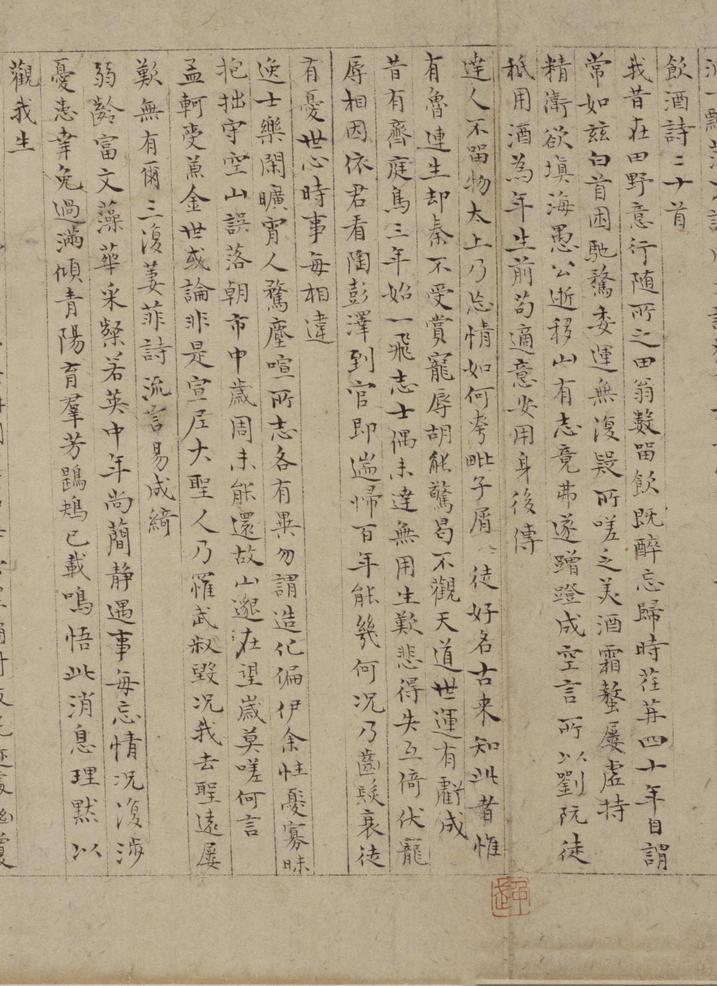 飲酒詩二十首
我昔在田野意行随所之田翁数留飲既醉忘歸時荏苒四十年自謂
常如兹白首困馳騖委運無復疑所嗟乏美酒霜螯屢虚持
精衛欲填海愚公逝移山有志竟弗遂蹭蹬成空言所以劉阮徒
秖用酒為年生前苟適意安用身後傳
達人不留物太上乃忘情如何夸毗子屑〻徒好名古来知此者惟
有魯連生却秦不受賞寵辱胡能驚曷不觀天道世運有虧成
昔有齊庭鳥三年始一飛志士偶未達無用生歎悲得失互倚伏寵
辱相因依君看陶彭澤到官即遄歸百年能幾何况乃齒髮衰徒
有憂世心時事每相違
逸士樂閑曠宵人騖塵喧所志各有異勿謂造化偏伊余性憂寡昧
抱拙守空山誤落朝市中歲周未能還故山邈在望歲莫嗟何言
孟軻受兼金世或論非是宣尼大聖人乃罹武叔毀况我去聖遠屢
歎無有爾三復萋菲詩流言易成綺
弱齡富文藻華采粲若英中年尚蕳静遇事每忘情况復涉
憂患幸免過滿傾青陽育羣芳鶗鴂已載鳴悟此消息理黙以
觀我生